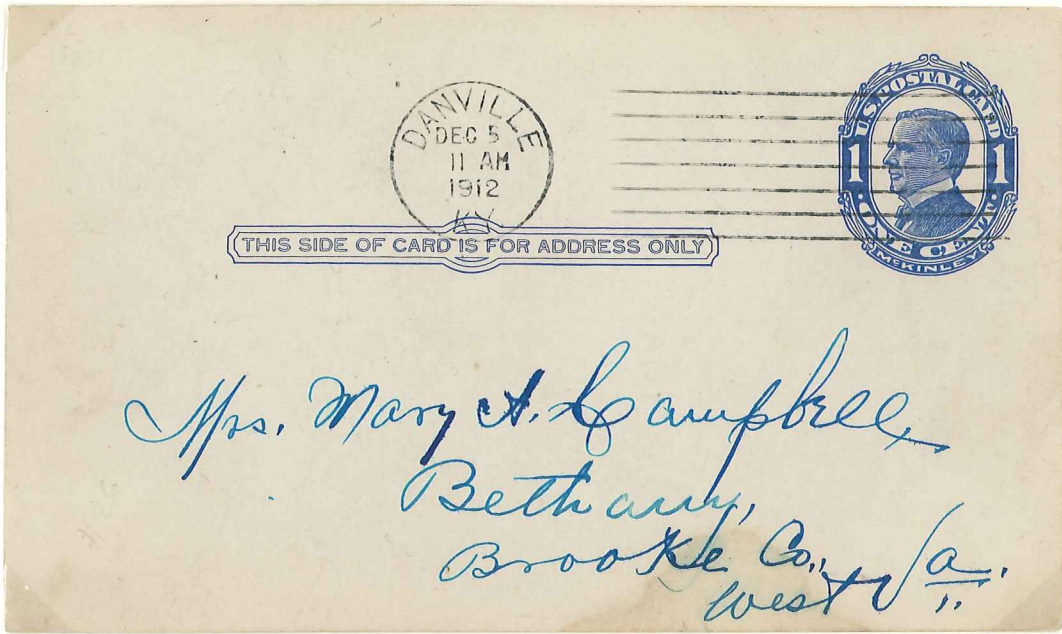 DANVILLE
DEC 5
11 AM
1912
KY
U.S. POSTAL CARD
1 1
· ONE CENT ·
McKINLEY
THIS SIDE OF CARD IS FOR ADDRESS ONLY
Mrs. Mary A. Campbell,
Bethany,
Brooke Co.,
West Va.